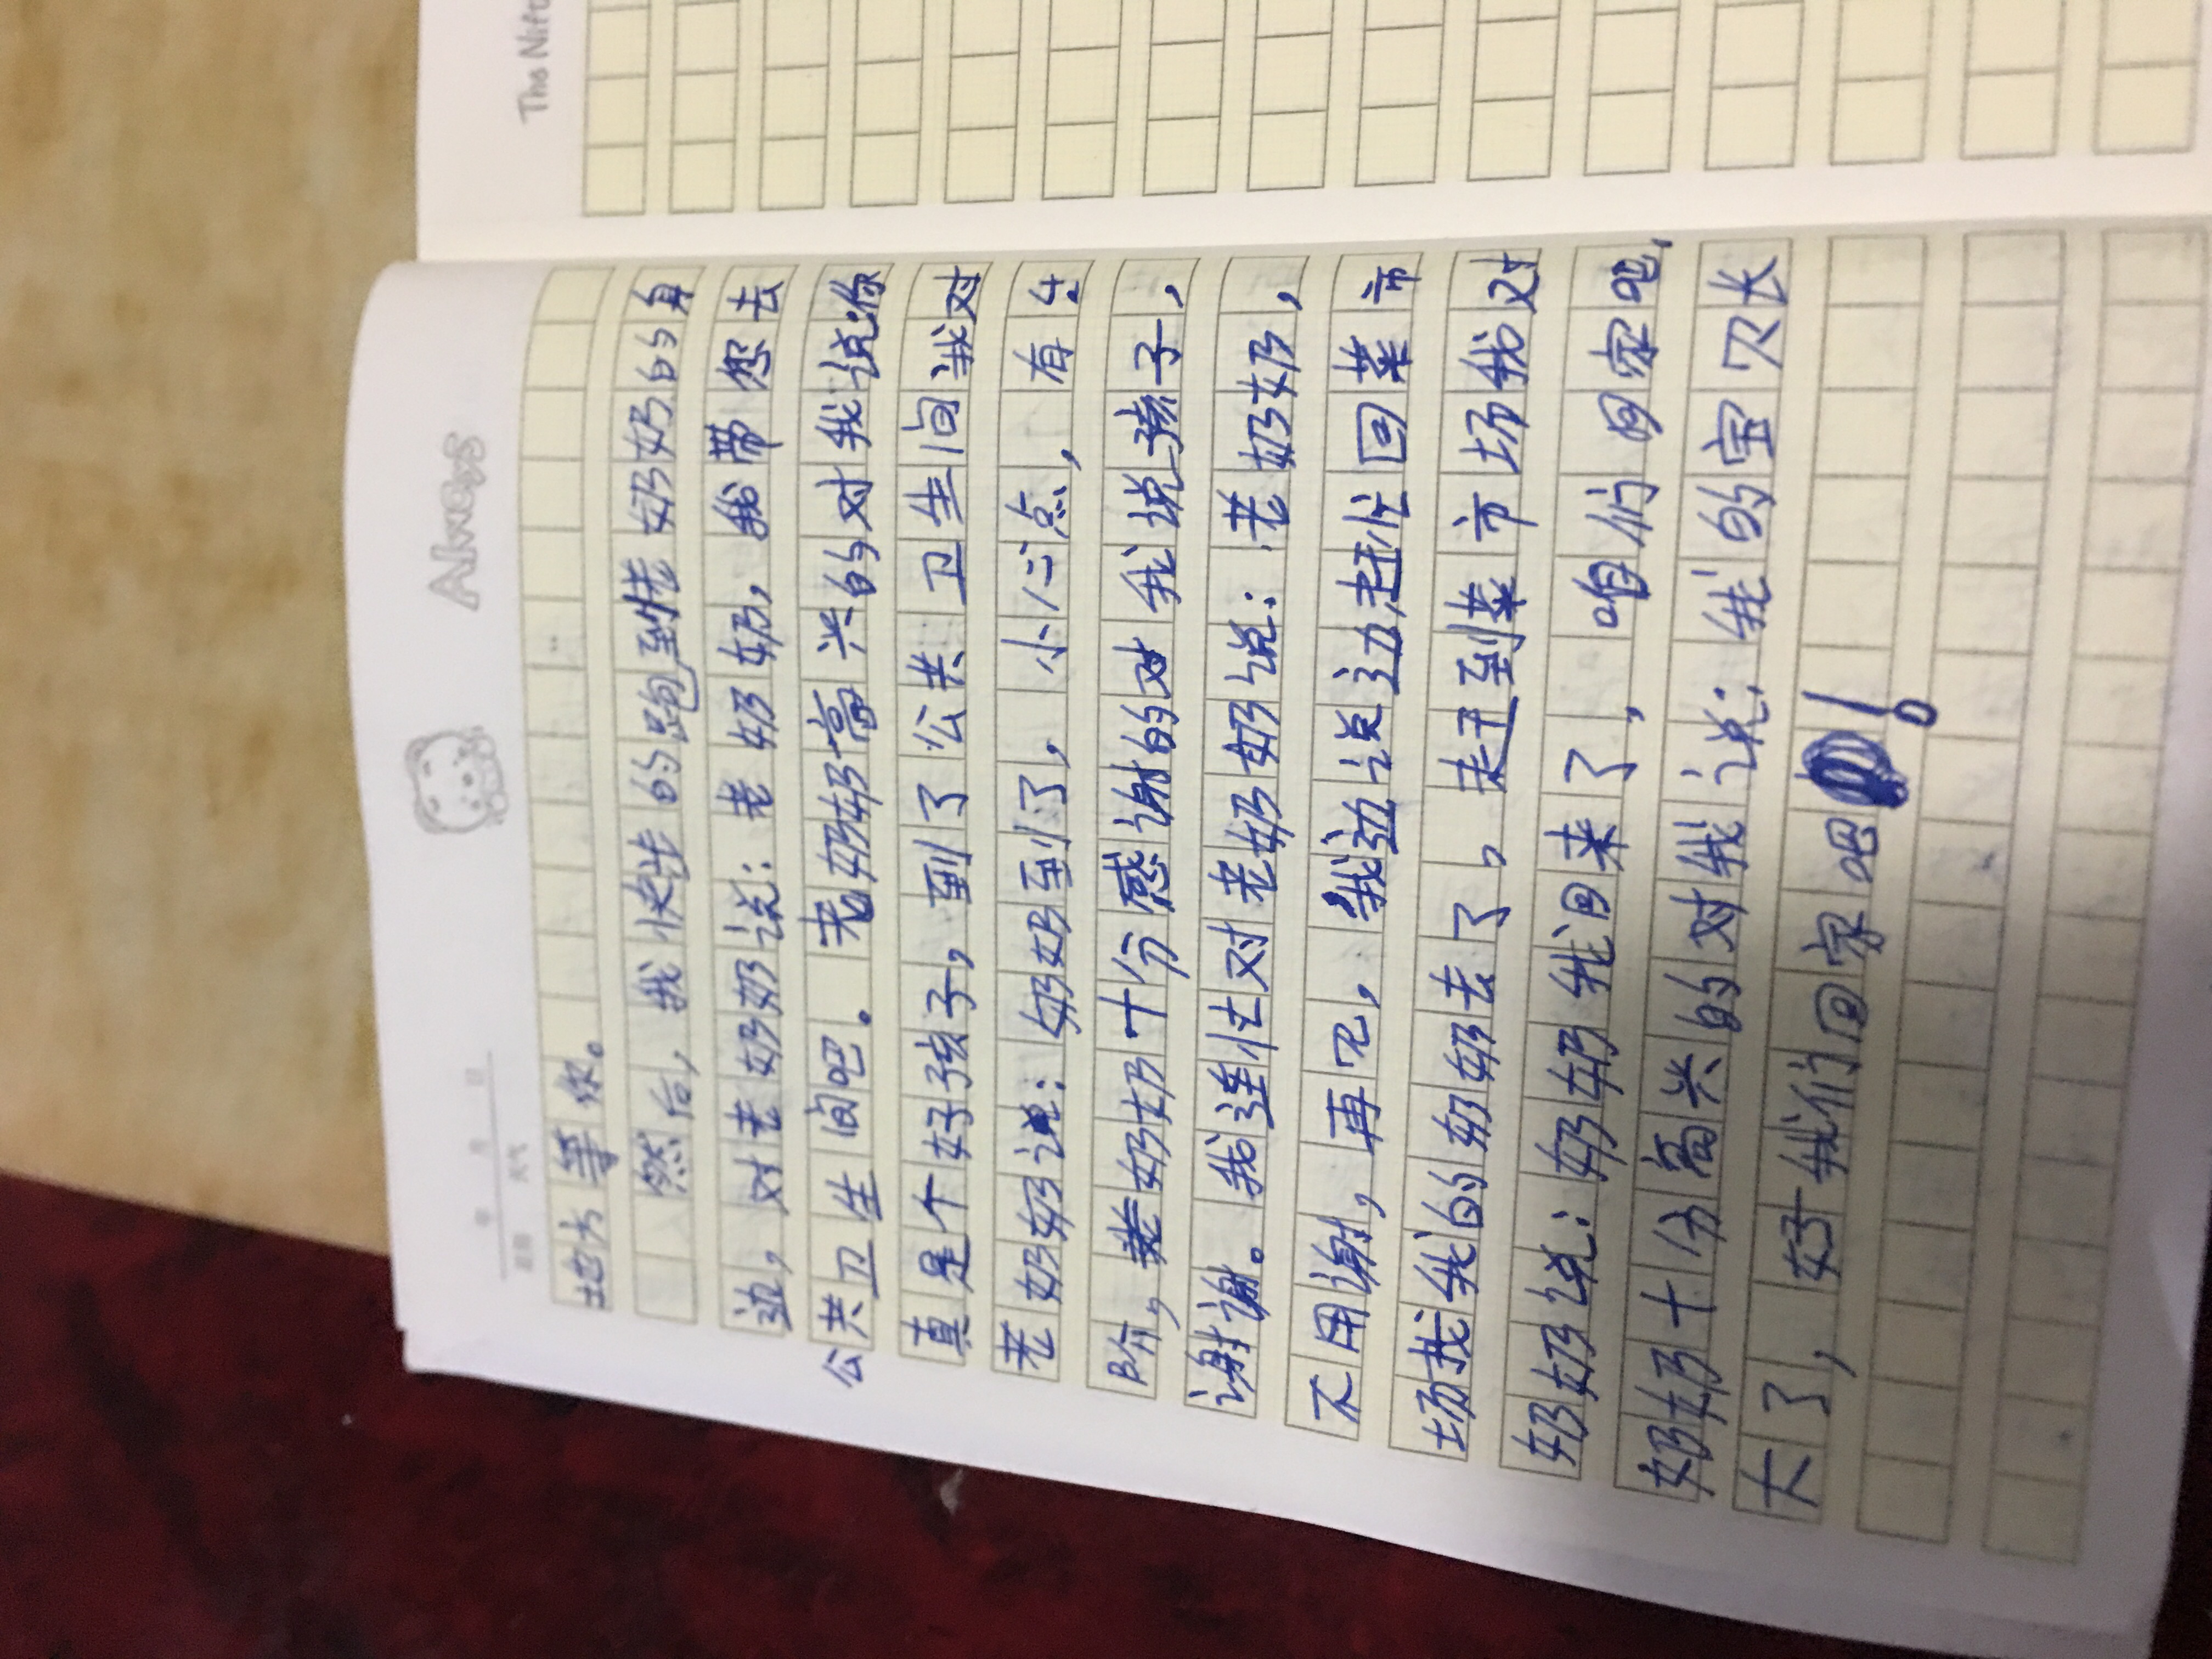 The Nift
Always
年 月 日
星期 天气
地方等你。
然后，我快步的跑到老奶奶的身
边，对老奶奶说：老奶奶，我带您去
公共卫生间吧。老奶奶高兴的对我说你
真是个好孩子，到了公共卫生间我对
老奶奶说：奶奶到了，小心点，有4.
阶，老奶奶十分感谢的对我说孩子，
谢谢。我连忙对老奶奶说：老奶奶，
不用谢，再见，我边说边赶忙回菜市
场找我的奶奶去了，走到菜市场我对
奶奶说：奶奶我回来了，咱们回家吧，
奶奶十分高兴的对我说：我的宝贝长
大了，好我们回家吧！